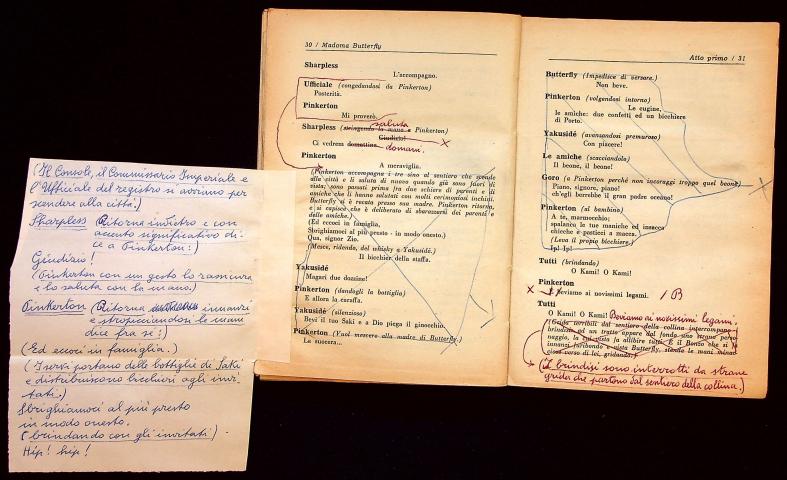 (Il Console, il Commissario Imperiale e
l'Ufficiale del registro si avviano per
scendere alla città.)
Sharpless (Ritorna indietro e con
accento significativo di-
ce a Pinkerton:)
Giudizio!
(Pinkerton con un gesto lo rassicura
e lo saluta con la mano.)
Pinkerton (Ritorna innanzi
e stropicciandosi le mani
dice fra sè:)
(Ed eccoci in famiglia.)
(I servi portano delle bottiglie di Saki
e distribuiscono bicchieri agli invi-
tati.)
Sbrighiamoci al più presto
in modo onesto.
(brindando con gli invitati)
Hip! hip!
30 / Madama Butterfly
Sharpless
L'accompagno.
Ufficiale (congedandosi da Pinkerton)
Posterità.
Pinkerton
Mi proverò.
saluta
Sharpless (stringendo la mano a Pinkerton)
Giudizio! X
Ci vedrem domattina. domani.
Pinkerton
A meraviglia.
(Pinkerton accompagna i tre sino al sentiero che scende
alla città e li saluta di nuovo quando già sono fuori di
vista; sono passati prima fra due schiere di parenti e di
amiche che li hanno salutati con molti cerimoniosi inchini.
Butterfly si è recata presso sua madre. Pinkerton ritorna,
e si capisce che è deliberato di sbarazzarsi dei parenti e
delle amiche.)
(Ed eccoci in famiglia,
Sbrighiamoci al più presto - in modo onesto.)
Qua, signor Zio.
(Mesce, ridendo, del whisky a Yakusidé.)
Il bicchier della staffa.
Yakusidé
Magari due dozzine!
Pinkerton (dandogli la bottiglia)
E allora la caraffa.
Yakusidé (silenzioso)
Bevi il tuo Saki e a Dio piega il ginocchio.
Pinkerton (Vuol mescere alla madre di Butterfly.)
Le suocera...
Atto primo / 31
Butterfly (Impedisce di versare.)
Non beve.
Pinkerton (volgendosi intorno)
Le cugine,
le amiche: due confetti ed un bicchiere
di Porto.
Yakusidé (avanzandosi premuroso)
Con piacere!
Le amiche (scacciandolo)
Il beone, il beone!
Goro (a Pinkerton perché non incoraggi troppo quel beone)
Piano, signore, piano!
ch'egli borrebbe il gran padre oceano!
Pinkerton (al bambino)
A te, marmocchio;
spalanca le tue maniche ed insacca
chicche e pasticci a macca.
(Leva il propio bicchiere.)
Ip! Ip!
Tutti (brindando)
O Kami! O Kami!
Pinkerton
X Beviamo ai novissimi legami. / B
Tutti
O Kami! O Kami! Beviamo ai novissimi legami.
(Grida terribili dal sentiero della collina interrompono i
brindisi ed un tratto appare dal fondo uno strano perso-
naggio, la cui vista fa allibire tutti. È il Bonzo che si fa
innanzi furibondo e vista Butterfly, stende le mani minac-
ciose verso di lei, gridando.)
(I brindisi sono interrotti da strane
grida che partono dal sentiero della collina.)